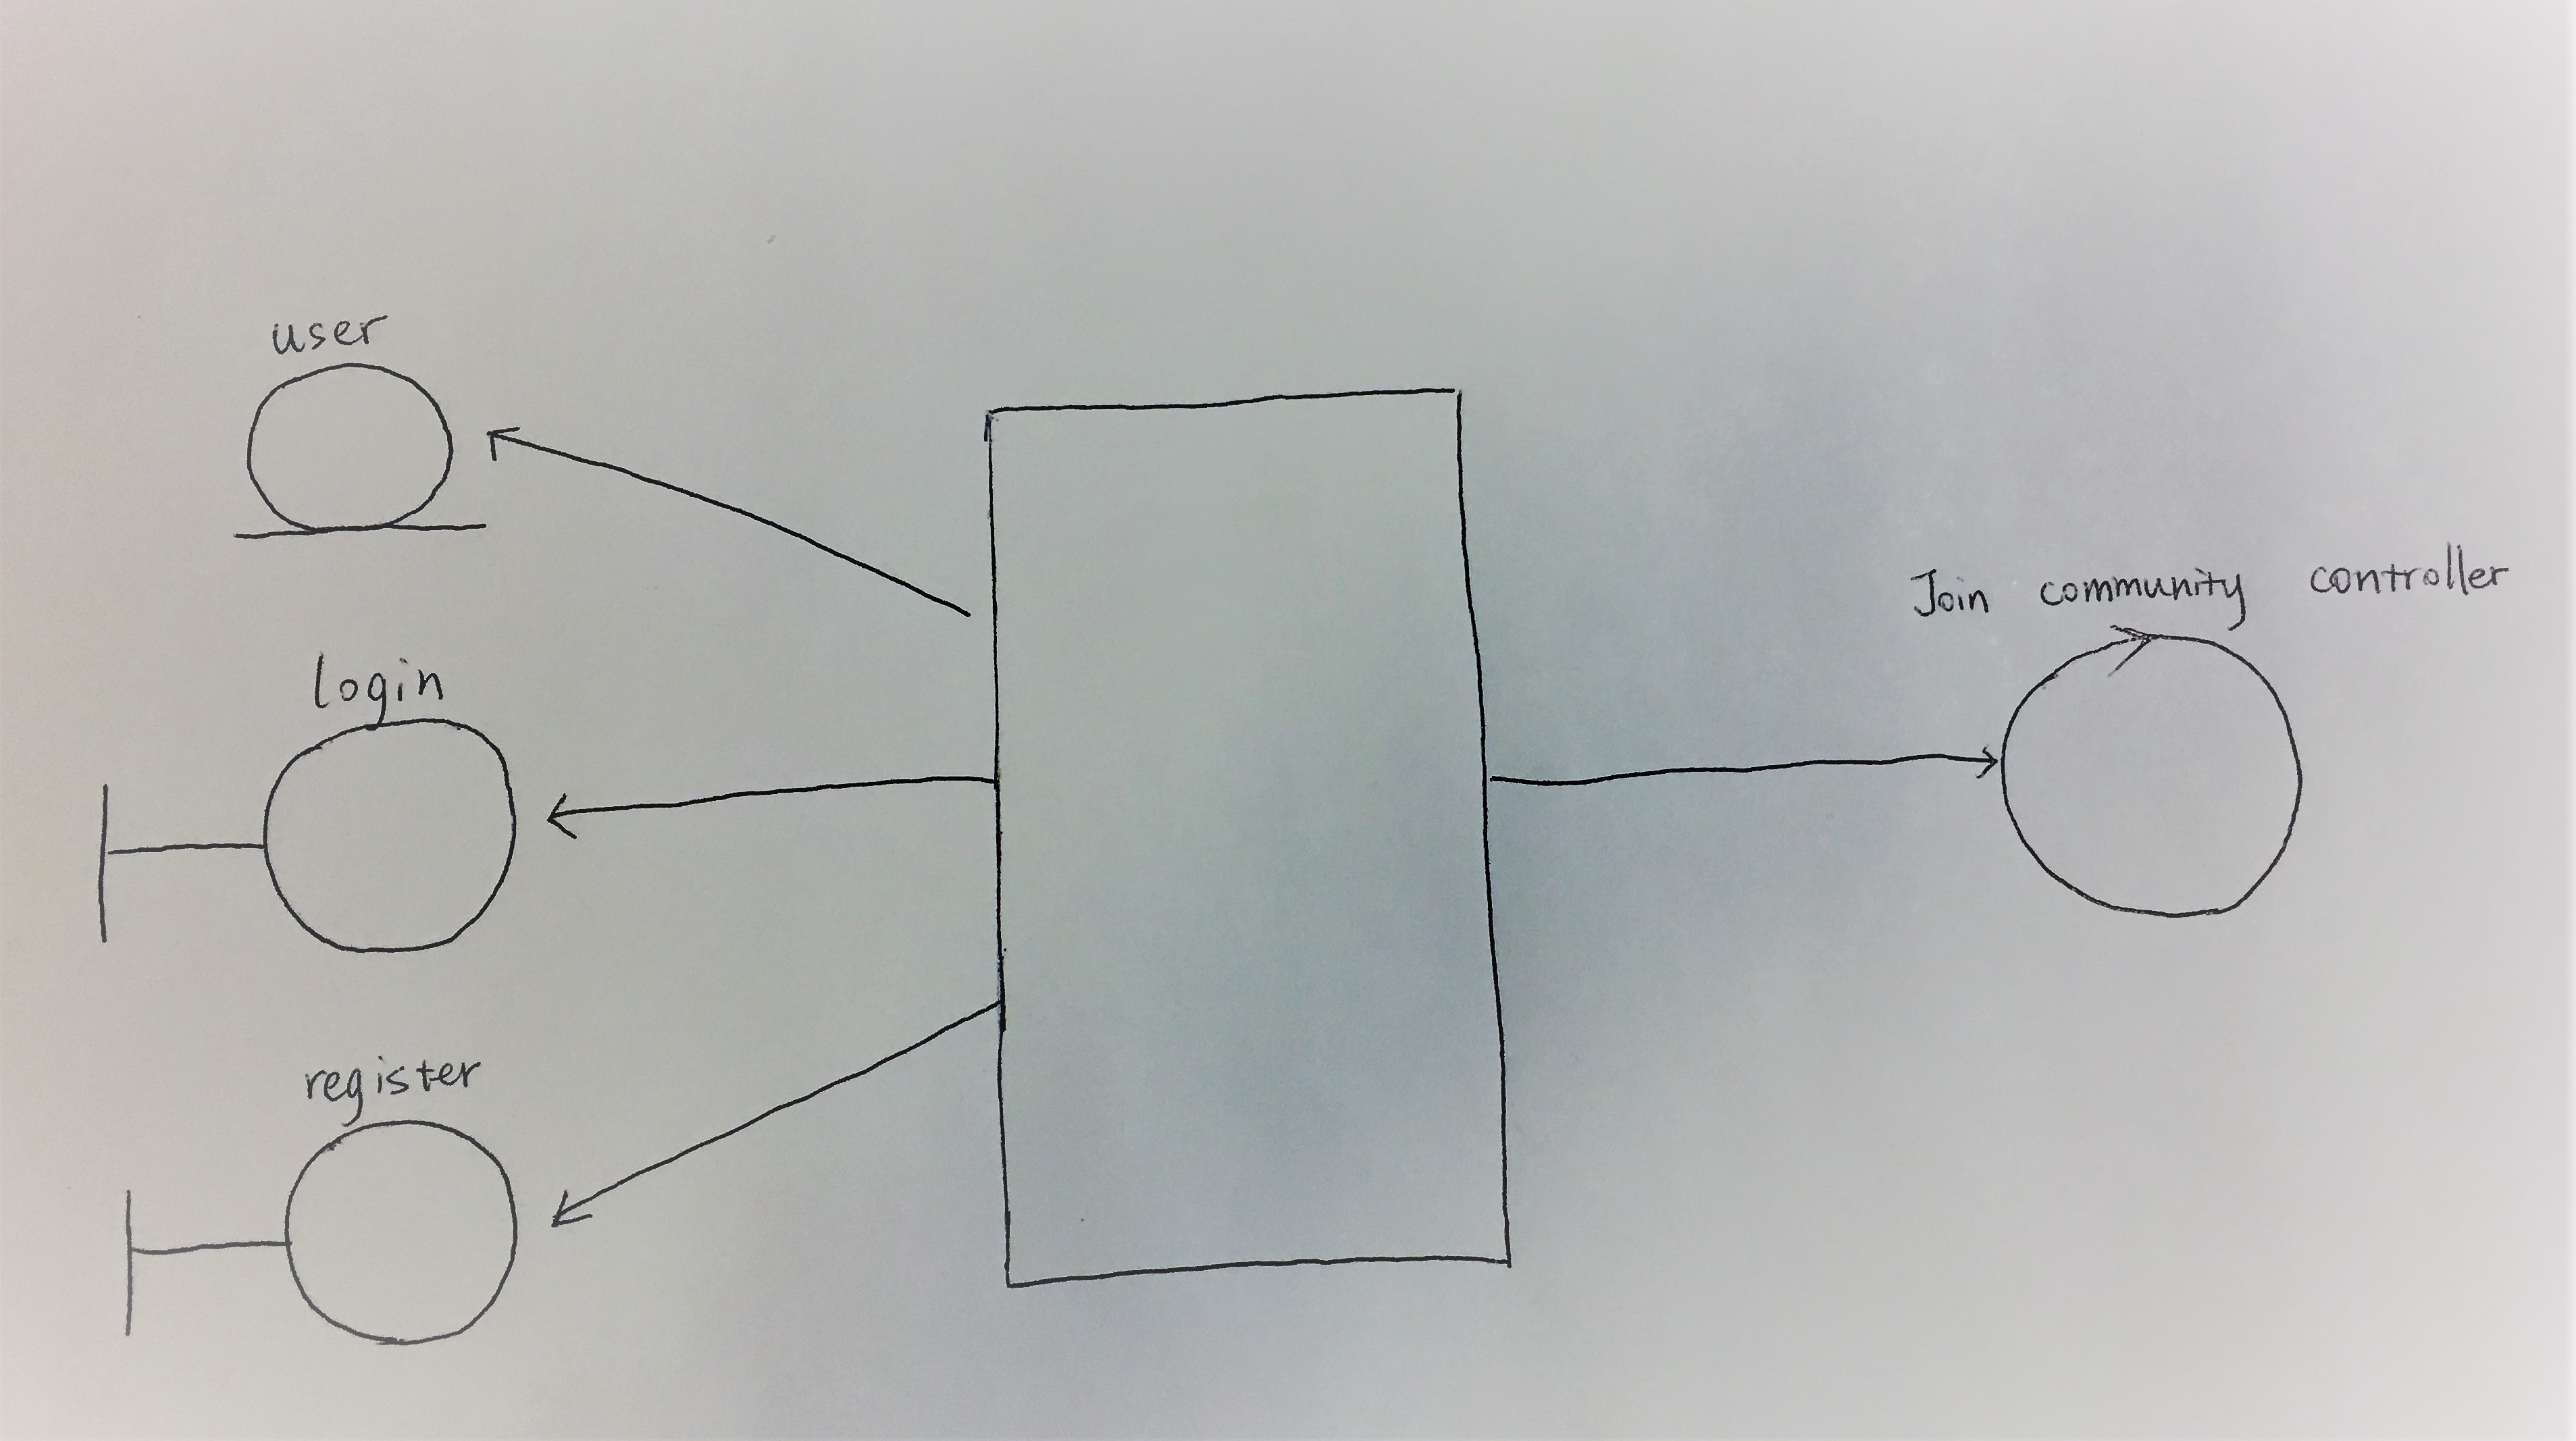 user
login
register
Join community controller